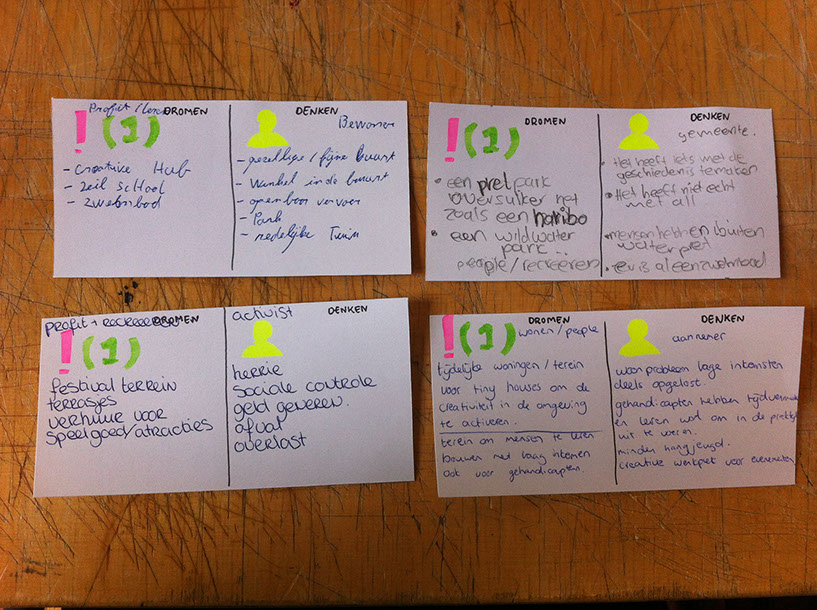 Profit / leren DROMEN
! (1)
- Creative Hub
- zeil school
- zwembad
DENKEN
Bewoner
- gezellige / fijne buurt
- Winkel in de buurt
- openbaar vervoer
- Park
- Tuin
DROMEN
! (1)
• een pretpark
over suiker net
zoals een haribo
• een wildwater
park...
people/recreëren
DENKEN
gemeente.
• Het heeft iets met de
geschiedenis te maken
• Het heeft niet echt
met all
• mensen hebben buiten
water pret
• er is al een zwembad
profit + DROMEN
! (1)
festival terrein
terrasjes
verhuur voor
speelgoed/atracties
DENKEN
activist
herrie
sociale controle
geld
afval
overlast
DROMEN
! (1) wonen / people
tijdelijke woningen / terein
voor tiny houses om de
creativiteit in de omgeving
te activeren.
terein om mensen te leren
bouwen met laag inkomen
ook voor gehandicapten.
DENKEN
aannemer
woon probleem lage inkomsten
deels opgelost.
gehandicapten hebben
en leren wod om in de praktijk
uit te voeren.
minder hangjeugd.
creative werkplet voor evenementen